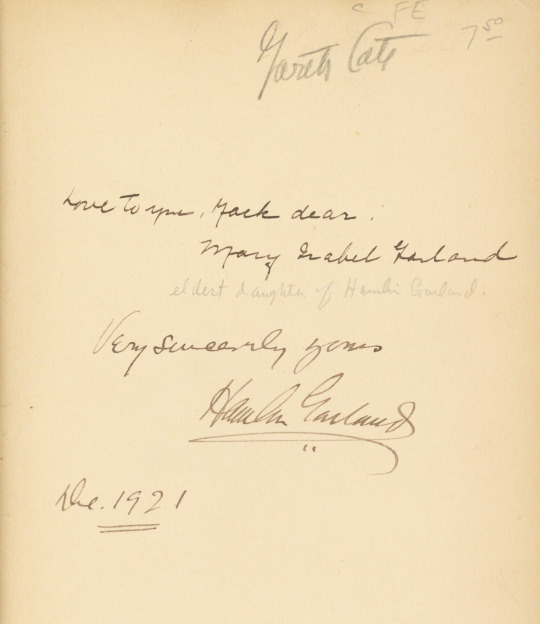 C FE
7 50
Gareth Cate
Love to you, Jack dear.
Mary Isabel Garland
eldest daughter of Hamlin Garland.
Very sincerely yours
Hamlin Garland
Dec. 1921